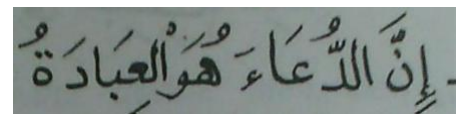 إِنَّ الدُّعَاءَ هُوَ الْعِبَادَةُ